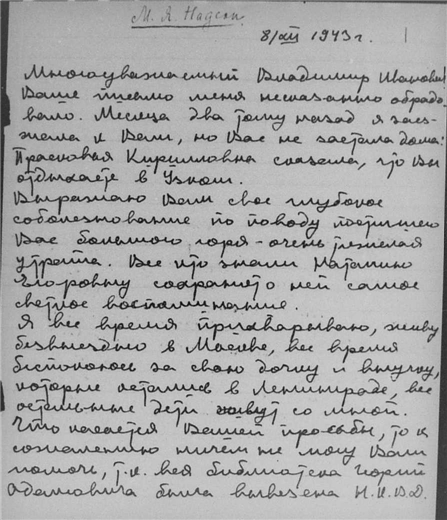 М. А. Надсон
8/XII 1943 г.
Многоуважаемый Владимир Иванович!
Ваше письмо меня несказанно обрадо-
вало. Месяца два тому назад я заез-
жала к Вам, но Вас не застала дома:
Прасковья Кирилловна сказала, что Вы
отдыхаете в Узком.
Выражаю Вам свое глубокое
соболезнование по поводу постигшего
Вас большого горя - очень тяжелая
утрата. Все кто знали Наталию
Егоровну сохранят о ней самое
светлое воспоминание.
Я все время прихварываю, живу
безвыездно в Москве, все время
беспокоюсь за свою дочку и внучку,
которые остались в Ленинграде, все
остальные дети живут со мной.
Что касается Вашей просьбы, то к
сожалению ничем не могу Вам
помочь, т.к. вся библиотека
Адамовича была вывезена Н.К.В.Д.